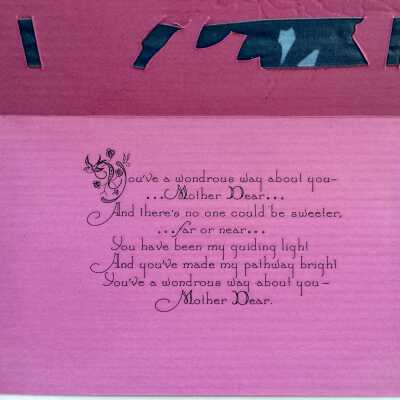 You've a wondrous way about you—
...Mother Dear...
And there's no one could be sweeter,
...far or near...
You have been my guiding light
And you've made my pathway bright
You've a wondrous way about you—
Mother Dear.